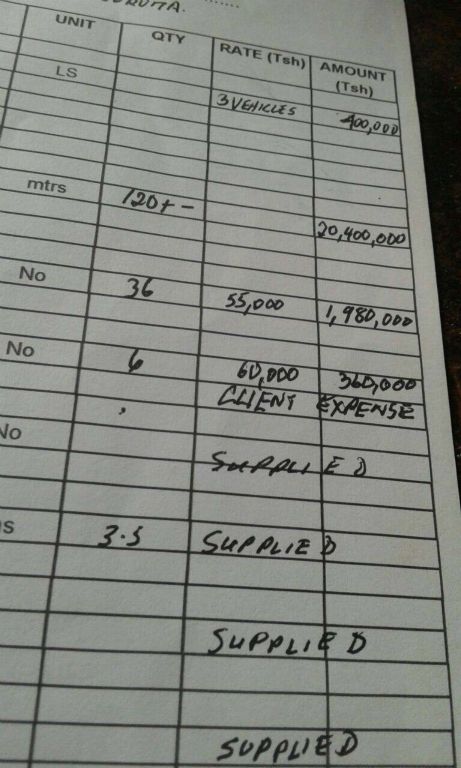 UNIT QTY RATE (Tsh) AMOUNT (Tsh)
LS
3 VEHICLES 400,000
mtrs 120+-
20,400,000
No 36 55,000 1,980,000
No 6 60,000 360,000
CLIENT EXPENSE
No
SUPPLIED
3.5 SUPPLIED
SUPPLIED
SUPPLIED